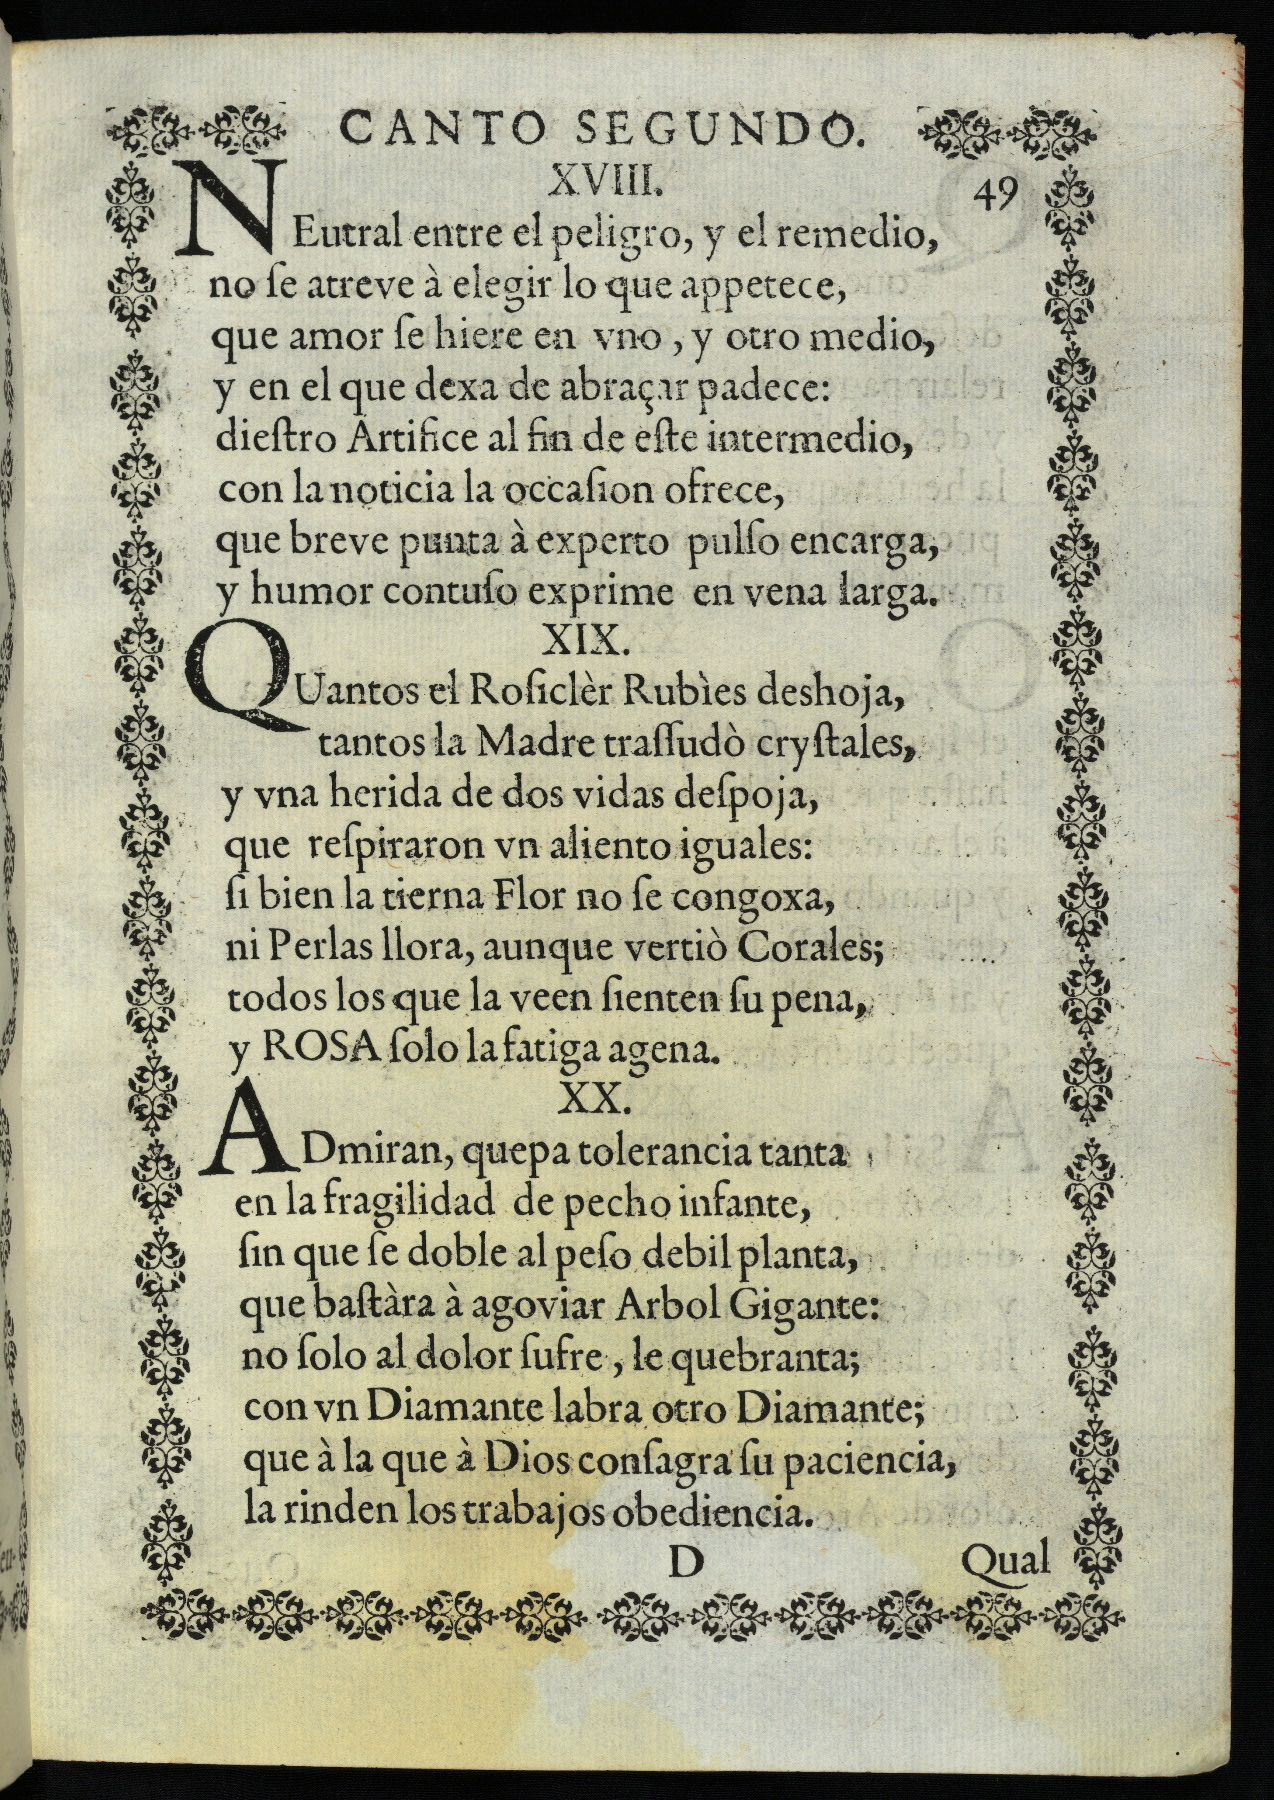 CANTO SEGUNDO.
XVIII.
49
NEutral entre el peligro, y el remedio,
no ſe atreve à elegir lo que appetece,
que amor ſe hiere en vno , y otro medio,
y en el que dexa de abraçar padece:
dieſtro Artifice al fin de eſte intermedio,
con la noticia la occaſion ofrece,
que breve punta à experto pulſo encarga,
y humor contuſo exprime en vena larga.
XIX.
QUantos el Roſiclèr Rubìes deshoja,
tantos la Madre traſſudò cryſtales,
y vna herida de dos vidas deſpoja,
que reſpiraron vn aliento iguales:
ſi bien la tierna Flor no ſe congoxa,
ni Perlas llora, aunque vertiò Corales;
todos los que la veen ſienten ſu pena,
y ROSA ſolo la fatiga agena.
XX.
ADmiran, quepa tolerancia tanta
en la fragilidad de pecho infante,
ſin que ſe doble al peſo debil planta,
que baſtàra à agoviar Arbol Gigante:
no ſolo al dolor ſufre , le quebranta;
con vn Diamante labra otro Diamante;
que à la que à Dios conſagra ſu paciencia,
la rinden los trabajos obediencia.
D
Qual